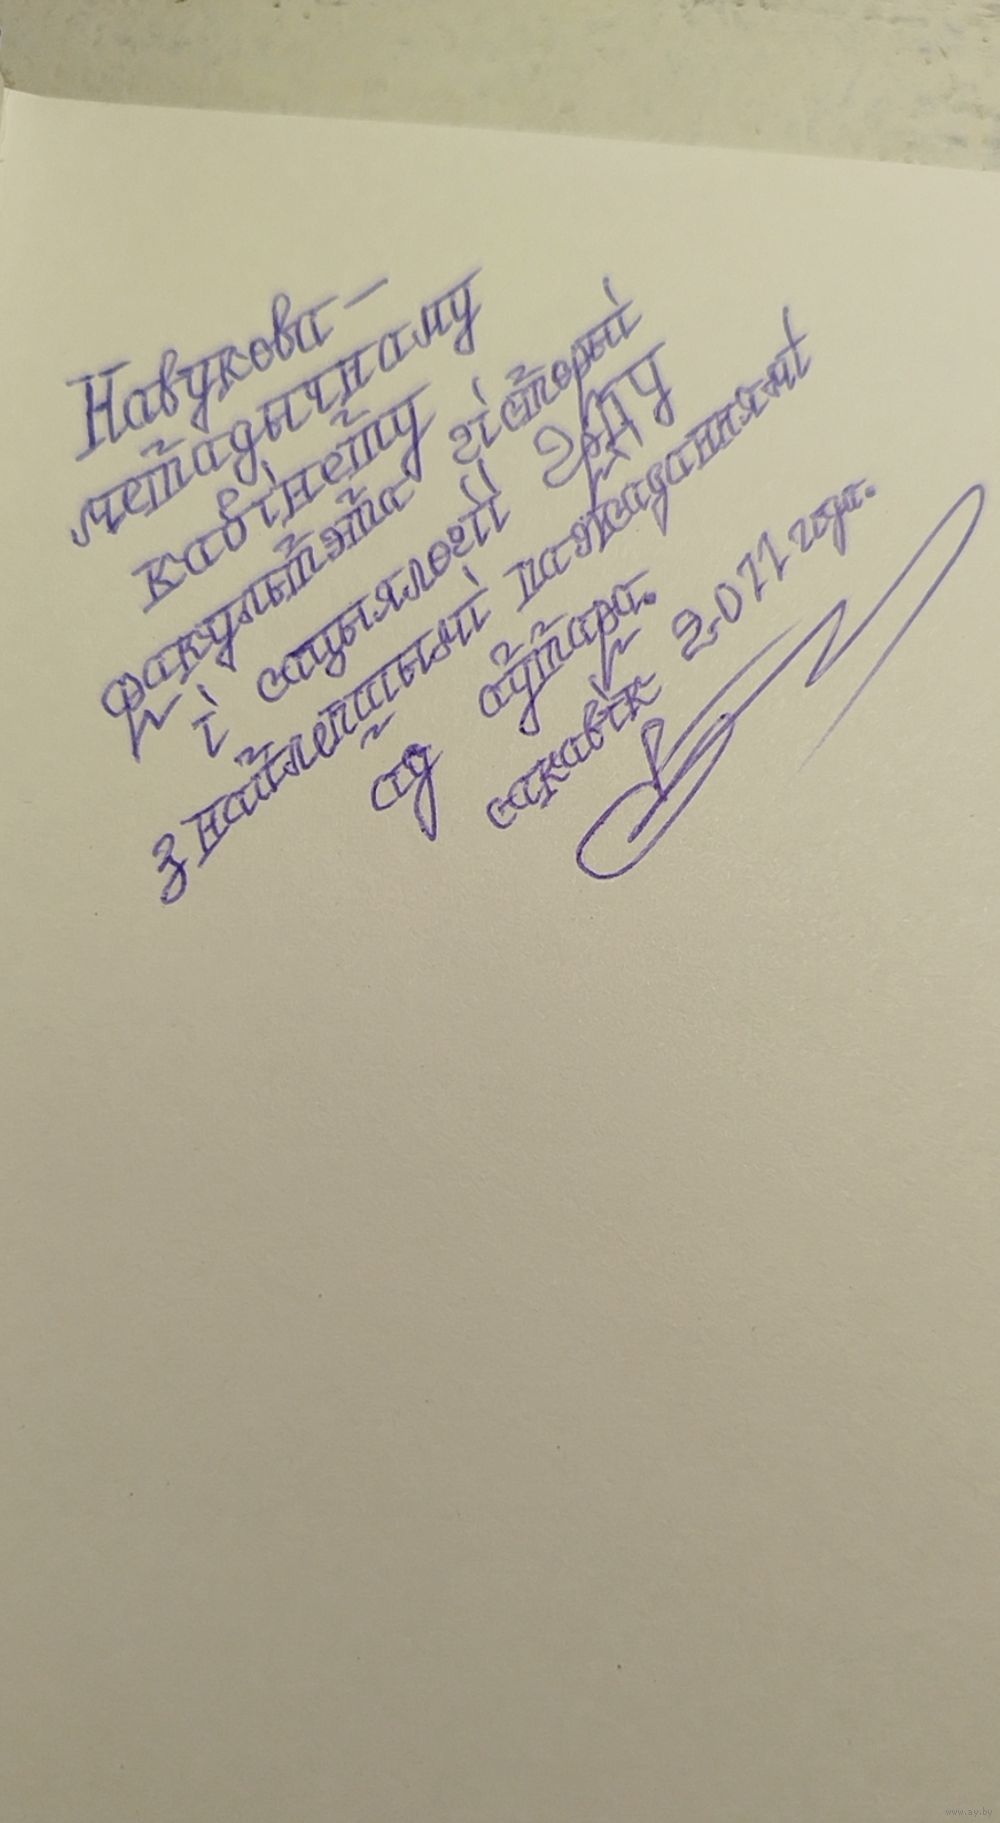 Навукова-
метадычнаму
кабінету
факультэта гісторыі
і сацыялогіі ГрДУ
з найлепшымі пажаданнямі
ад аўтара.
сакавік 2011 года.
www.ay.by